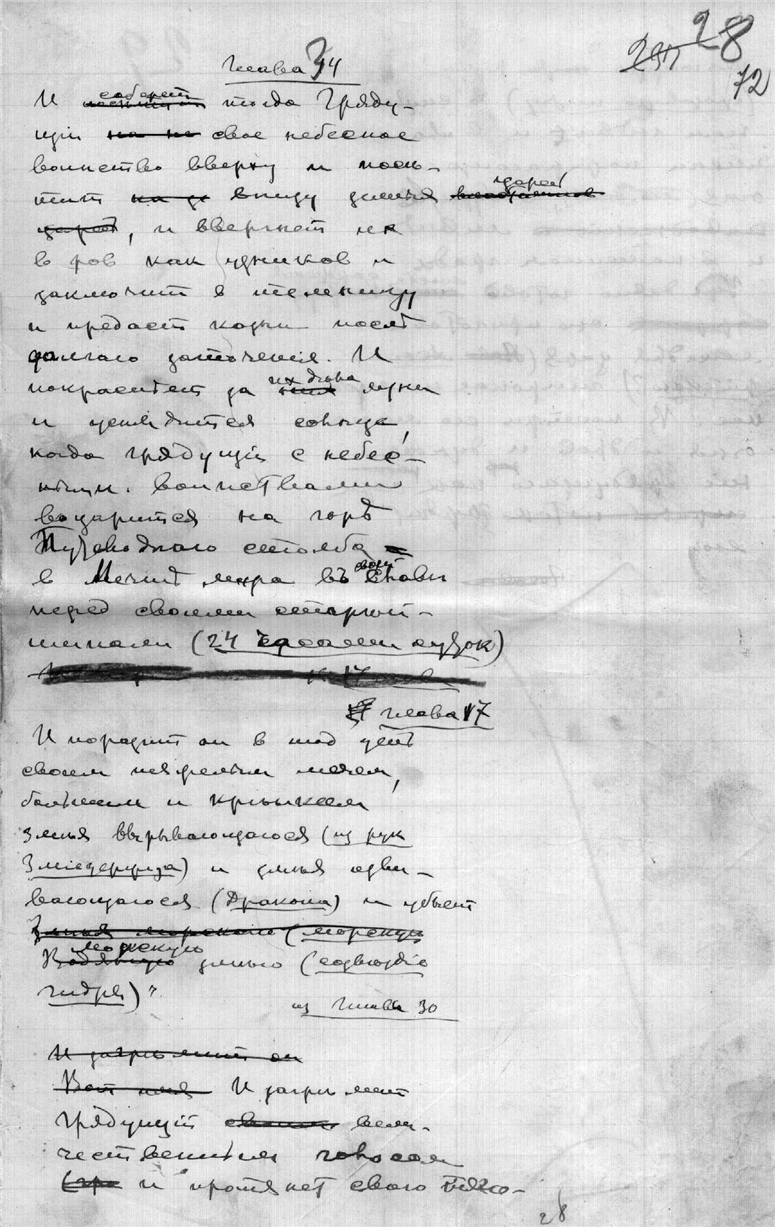 28
72
глава 34
И соберет тогда Гряду-
щій свое небесное
воинство вверху и посѣ-
тит внизу земля царей
, и ввергнет их
в ров как узников и
заключит в темницу
и предаст казни послѣ
долгаго заточенія. И
покраснѣет за их дѣла луна
и устыдится солнце,
когда грядущій с небес-
ными воинствами
воцарится на горѣ
Путеводнаго столба
в Мечтѣ мира въ своей славѣ
перед своими старѣй-
шинами (24 часами суток)
глава 17
И поразит он в тот день
своим тяжелым мечем,
большим и крѣпким
змѣя вырывающагося (из рук
Зміедержца) и змѣя изви-
вающагося (Дракона) и убьет
морскую
змѣю (созвѣздіе
гидры)"
из главы 30
И загремит
грядущій вели-
чественным голосом
и протянет свою тяго-
28